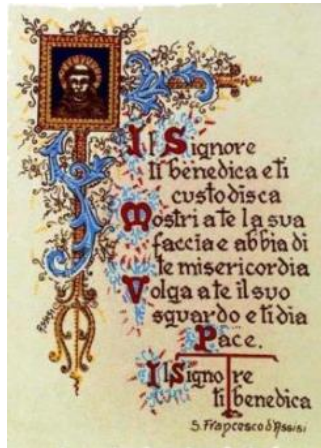 Il Signore
ti benedica e ti
custodisca
Mostri a te la sua
faccia e abbia di
te misericordia
Volga a te il suo
sguardo e ti dia
Pace.
Il Signore
ti benedica
S. Francesco d'Assisi